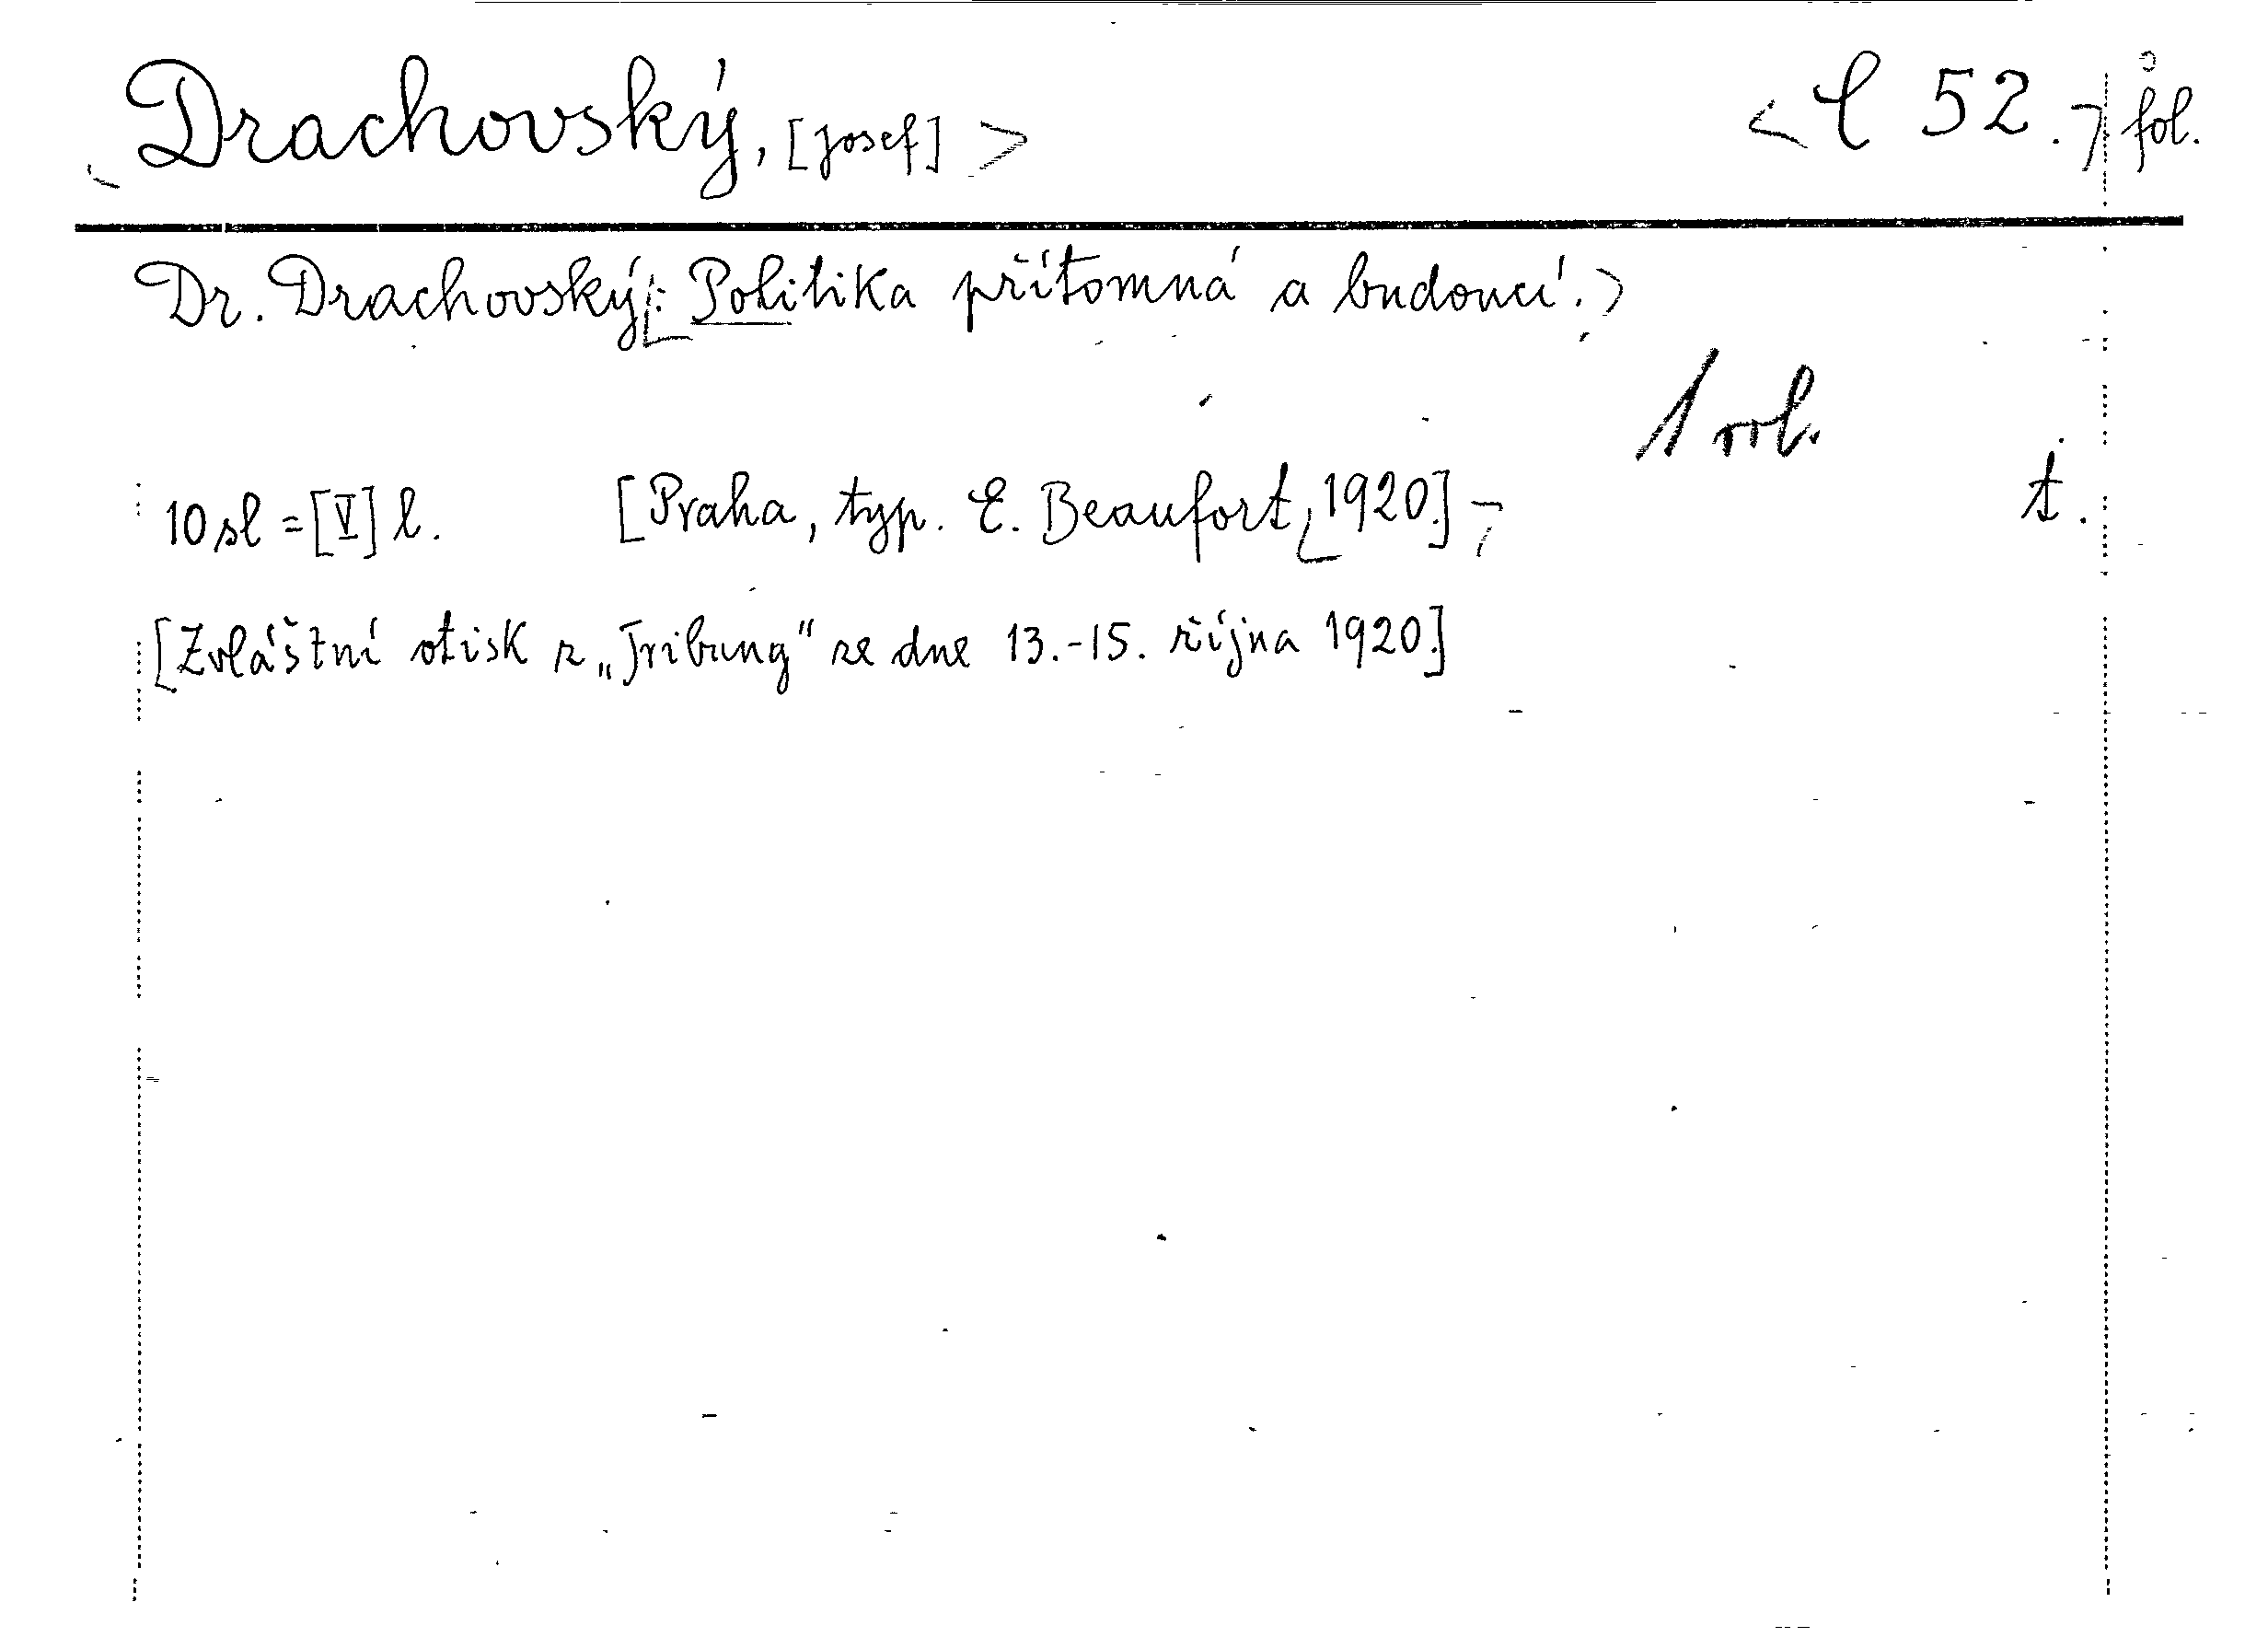 Drachovský, [Josef] > < C 52. > fol.
Dr. Drachovský: Politika přítomná a budoucí. >
1 vol.
10 sl = [V] l. [Praha, typ. E. Beaufort, 1920.] t.
[Zvláštní otisk z „Tribuny“ ze dne 13.-15. října 1920.]